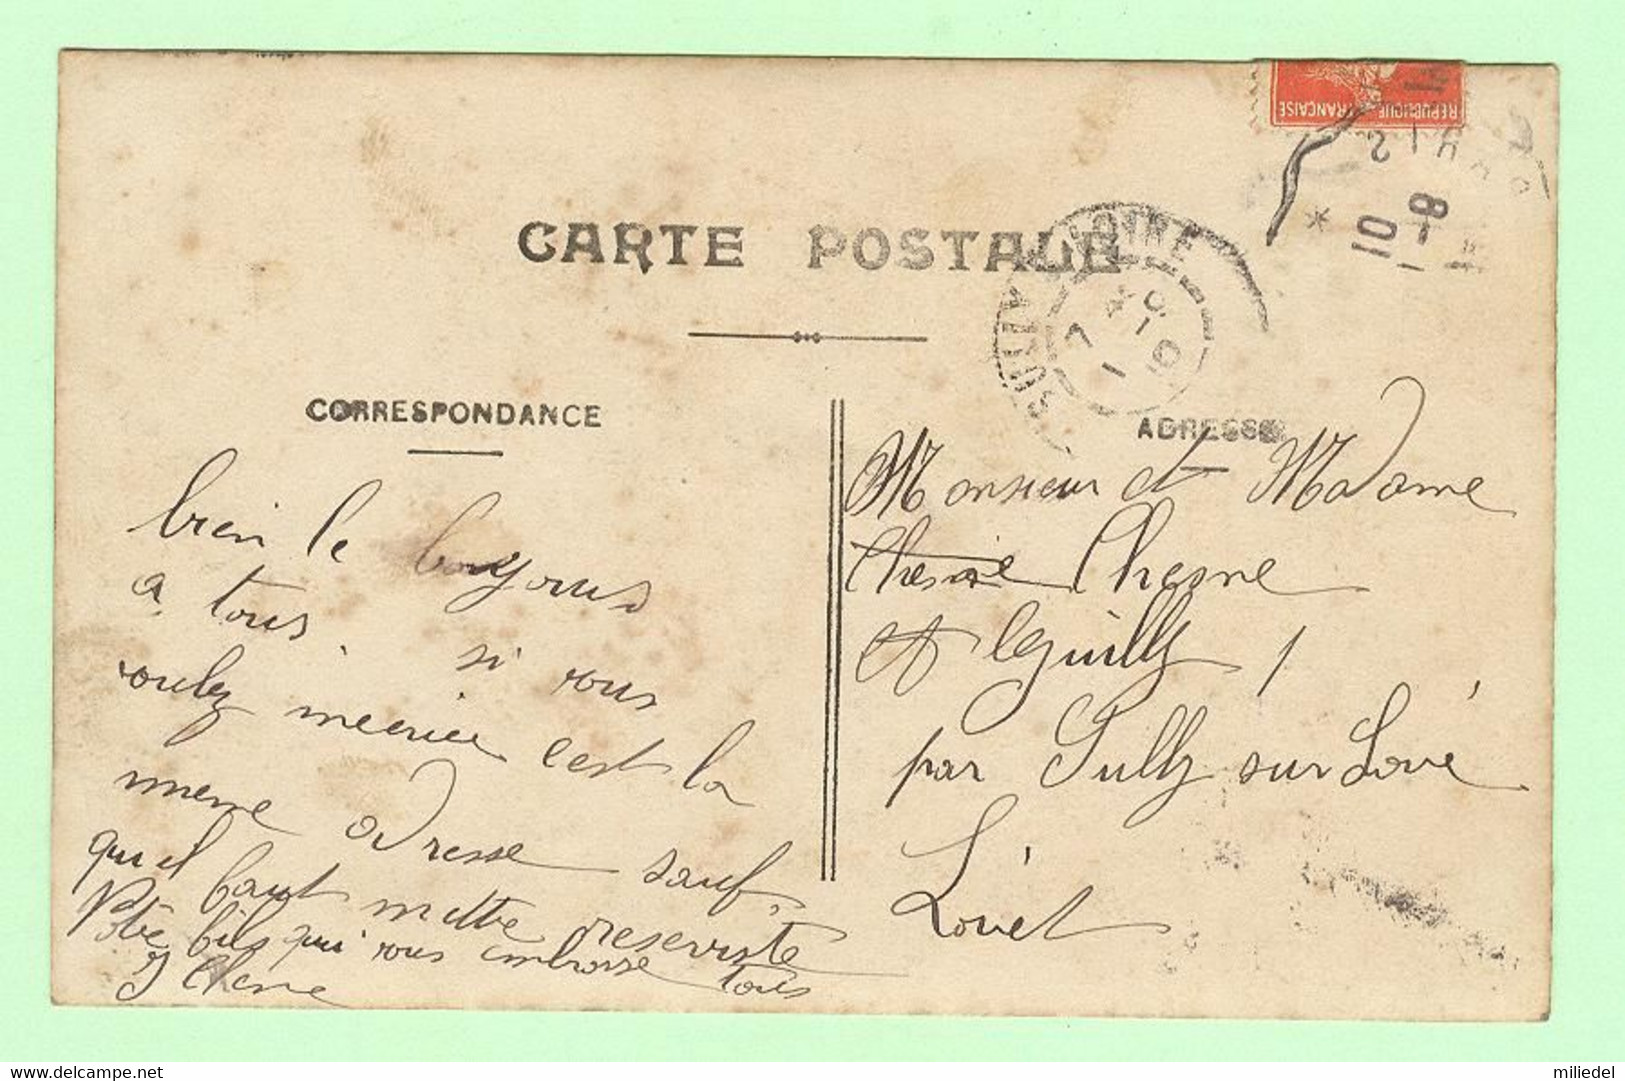 RÉPUBLIQUE FRANÇAISE
PARIS
8-1
10
CARTE POSTALE
SULLY LOIRE
CORRESPONDANCE
ADRESSE
bien le bonjours
a tous. si vous
voulez m'ecrire c'est la
meme adresse sauf
qu'il faut mettre reserviste
Votre fils qui vous embrasse tous
Monsieur et Madame
Chesne Chesne
a Cuilly
par Sully sur Loire
Loiret
miliedel